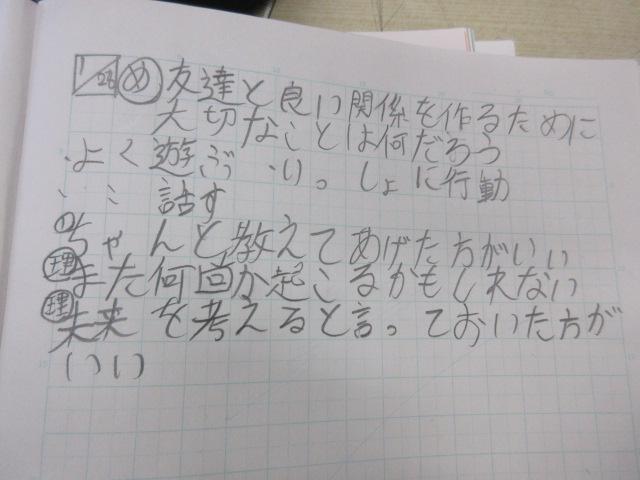 1/28 め 友達と良い関係を作るために
大切なことは何だろう
・よく遊ぶ ・いっしょに行動
・〃 話す
ちゃんと教えてあげた方がいい
理 また何回か起こるかもしれない
理 未来を考えると言っておいた方が
いい